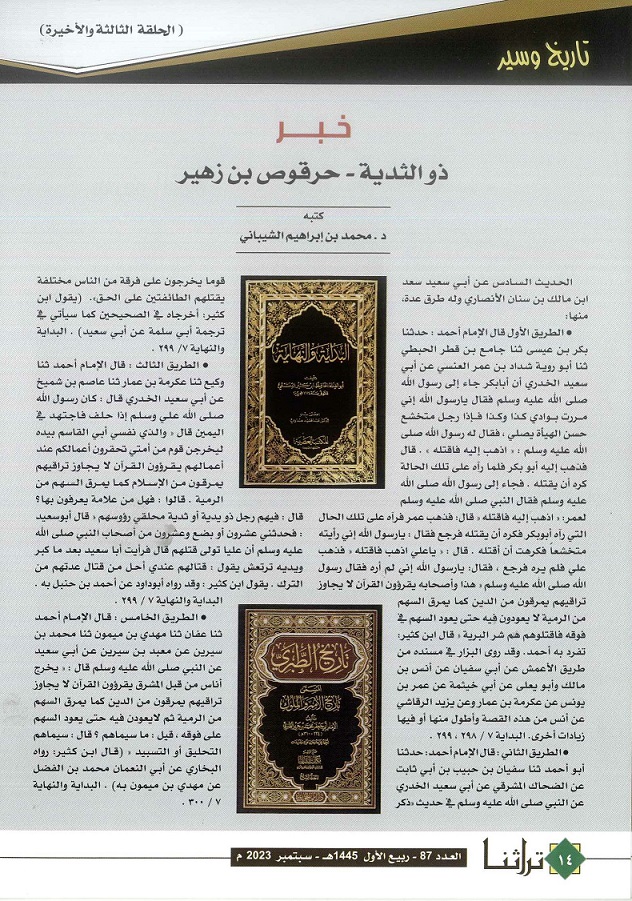 ( الحلقة الثالثة والأخيرة)
تاريخ وسير
خبر
ذو الثدية - حرقوص بن زهير
كتبه
د. محمد بن إبراهيم الشيباني
الحديث السادس عن أبي سعيد سعد
ابن مالك بن سنان الأنصاري وله طرق عدة،
منها:
● الطريق الأول قال الإمام أحمد : حدثنا
بكر بن عيسى ثنا جامع بن قطر الحبطي
ثنا أبو روية شداد بن عمر العنسي عن أبي
سعيد الخدري أن أبابكر جاء إلى رسول الله
صلى الله عليه وسلم فقال يارسول الله إني
مررت بوادي كذا وكذا فإذا رجل متخشع
حسن الهيأة يصلي ، فقال له رسول الله صلى
الله عليه وسلم : « اذهب إليه فاقتله » . قال
فذهب إليه أبو بكر فلما رآه على تلك الحالة
كره أن يقتله . فجاء إلى رسول الله صلى الله
عليه وسلم فقال النبي صلى الله عليه وسلم
لعمر: « اذهب إليه فاقتله » قال: فذهب عمر فرآه على تلك الحال
التي رآه أبوبكر فكره أن يقتله فرجع ، فقال: يارسول الله إني رأيته
متخشعاً فكرهت أن أقتله . قال : «ياعلي اذهب فاقتله » ، فذهب
علي فلم يره فرجع ، فقال: يارسول الله إني لم أره فقال رسول
الله صلى الله عليه وسلم « هذا وأصحابه يقرؤون القرآن لا يجاوز
تراقيهم يمرقون من الدين كما يمرق السهم
من الرمية لا يعودون فيه حتى يعود السهم في
فوقه فاقتلوهم هم شر البرية » قال ابن كثير:
تفرد به أحمد. وقد روى البزار في مسنده من
طريق الأعمش عن أبي سفيان عن أنس بن
مالك وأبو يعلى عن أبي خيثمة عن عمر بن
يونس عن عكرمة بن عمار وعن يزيد الرقاشي
عن أنس من هذه القصة وأطول منها أو فيها
زيادات أخرى. البداية ٧/ ٢٩٨ ، ٢٩٩ .
● الطريق الثاني : قال الإمام أحمد: حدثنا
أبو أحمد ثنا سفيان بن حبيب بن أبي ثابت
عن الضحاك المشرقي عن أبي سعيد الخدري
عن النبي صلى الله عليه وسلم في حديث «ذكر
قوما يخرجون على فرقة من الناس مختلفة
يقتلهم الطائفتين على الحق». (يقول ابن
كثير: أخرجاه في الصحيحين كما سيأتي في
ترجمة أبي سلمة عن أبي سعيد) . البداية
والنهاية ٧/ ٢٩٩ .
● الطريق الثالث : قال الإمام أحمد ثنا
وكيع ثنا عكرمة بن عمار ثنا عاصم بن شميخ
عن أبي سعيد الخدري قال : كان رسول الله
صلى الله علي وسلم إذا حلف فاجتهد في
اليمين قال « والذي نفسي أبي القاسم بيده
ليخرجن قوم من أمتي تحقرون أعمالكم عند
أعمالهم يقرؤون القرآن لا يجاوز تراقيهم
يمرقون من الإسلام كما يمرق السهم من
الرمية . قالوا : فهل من علامة يعرفون بها؟
قال : فيهم رجل ذو يدية أو ثدية محلقي رؤوسهم » قال أبوسعيد
: فحدثني عشرون أو بضع وعشرون من أصحاب النبي صلى الله
عليه وسلم أن عليا تولى قتلهم قال فرأيت أبا سعيد بعد ما كبر
ويديه ترتعش يقول : قتالهم عندي أحل من قتال عدتهم من
الترك . يقول ابن كثير : وقد رواه أبوداود عن أحمد بن حنبل به .
البداية والنهاية ٧ / ٢٩٩ .
● الطريق الخامس : قال الإمام أحمد
ثنا عفان ثنا مهدي بن ميمون ثنا محمد بن
سيرين عن معبد بن سيرين عن أبي سعيد
عن النبي صلى الله عليه وسلم قال : « يخرج
أناس من قبل المشرق يقرؤون القرآن لا يجاوز
تراقيهم يمرقون من الدين كما يمرق السهم
من الرمية ثم لايعودون فيه حتى يعود السهم
على فوقه ، قيل : ما سيماهم ؟ قال : سيماهم
التحليق أو التسبيد » (قال ابن كثير: رواه
البخاري عن أبي النعمان محمد بن الفضل
عن مهدي بن ميمون به) . البداية والنهاية
٧ / ٣٠٠ .
البداية والنهاية
تاريخ الطبري
تاريخ الأمم والملوك
١٤
تراثنا
العدد 87 - ربيع الأول 1445هـ - سبتمبر 2023 م